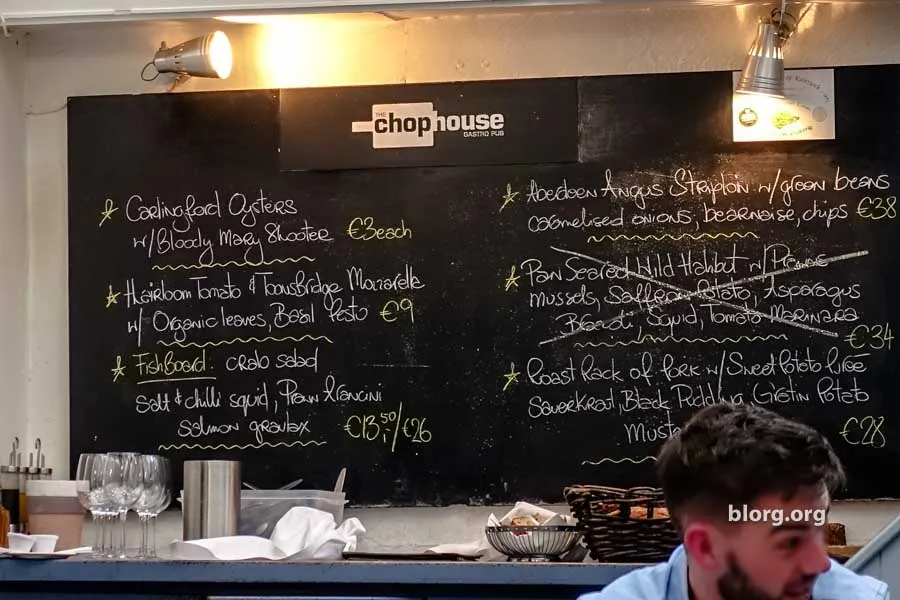 THE
chophouse
GASTRO PUB
Carlingford Oysters
w/Bloody Mary Shooter €3each
Heirloom Tomato & Toonsbridge Mozzarella
w/ Organic leaves, Basil Pesto €9
FishBoard: crab salad
Salt & chilli squid, Prawn Arancini
Salmon gravlax €13,50/€26
Aberdeen Angus Striploin w/green beans
caramelised onions, bearnaise, chips €38
Pan Seared Wild Halibut w/
Mussels, Saffron Potato, Asparagus
Squid, Tomato Marinara
€34
Roast Rack of Pork w/Sweet Potato Puree
Sauerkraut, Black Pudding, Gratin Potato
€28
blorg.org